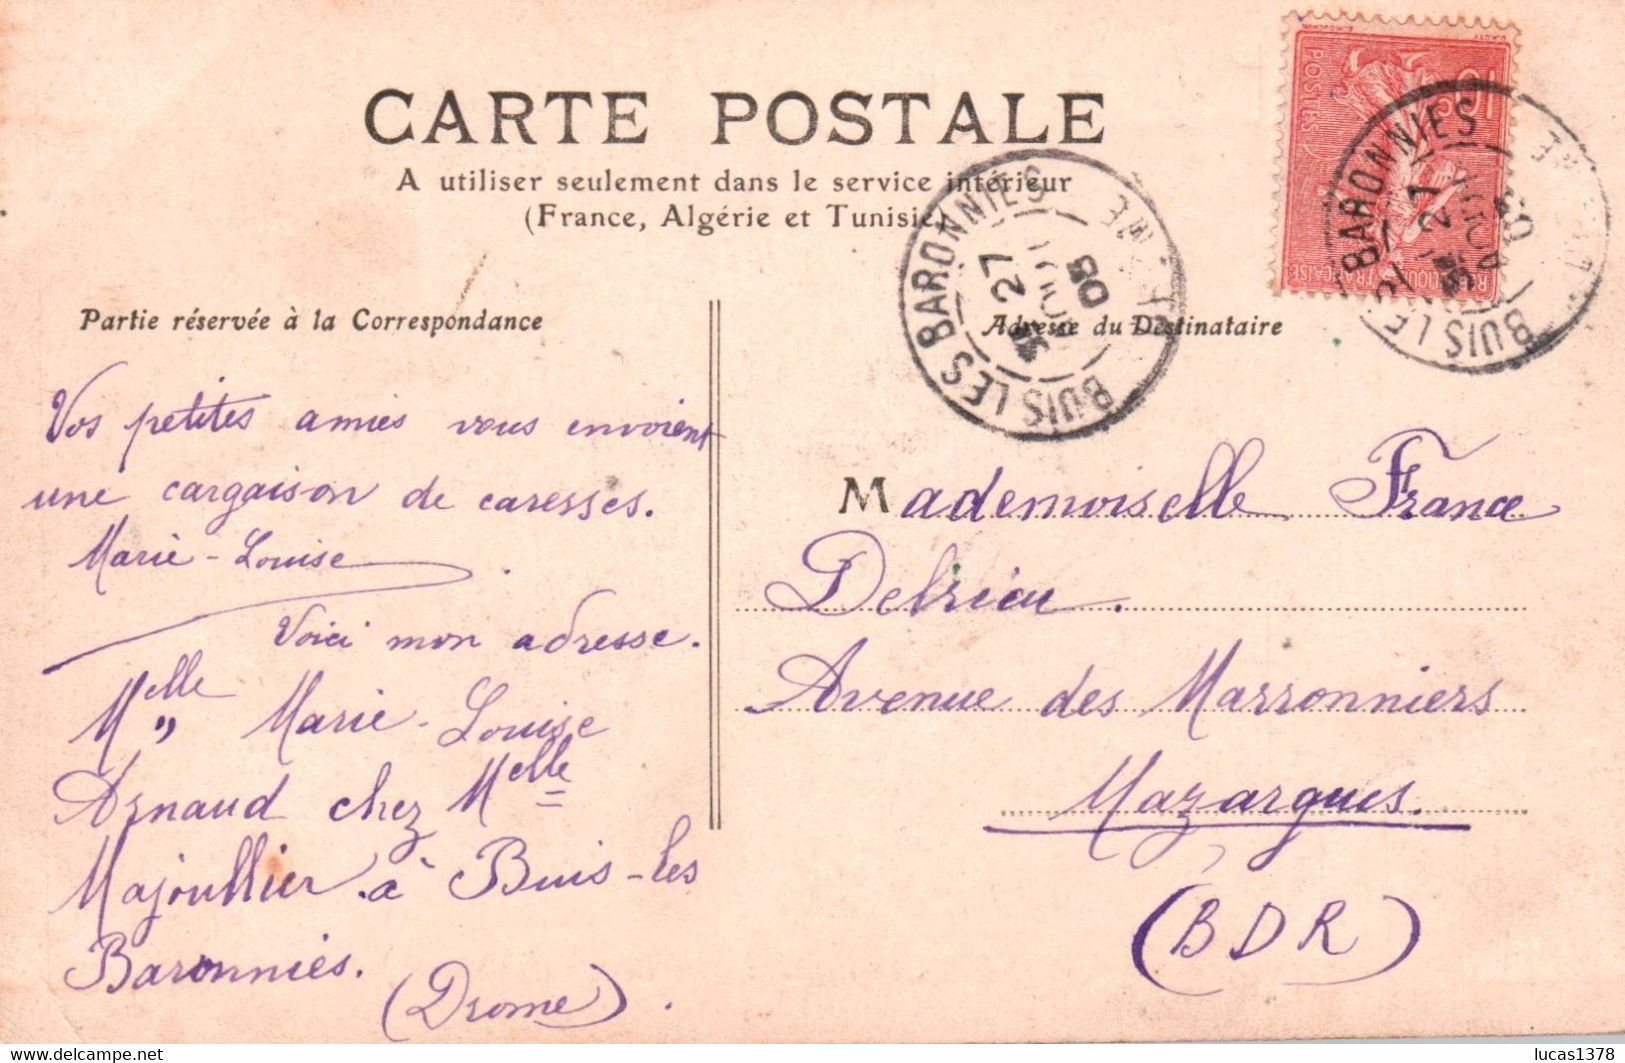 CARTE POSTALE
A utiliser seulement dans le service intérieur
(France, Algérie et Tunisie)
POSTES
10 c
FRANÇAISE
BUIS LES BARONNIES
27
AOUT
05
BUIS LES BARONNIES
27
AOUT
05
Partie réservée à la Correspondance
Adresse du Destinataire
Vos petites amies vous envoient
une cargaison de caresses.
Marie-Louise.
Voici mon adresse.
Melle Marie-Louise
Arnaud chez Melle
Majoullier à Buis-les
Baronnies.
(Drome).
Mademoiselle France
Delrieu.
Avenue des Marronniers
Mazargues.
(BDR)
lucas1378